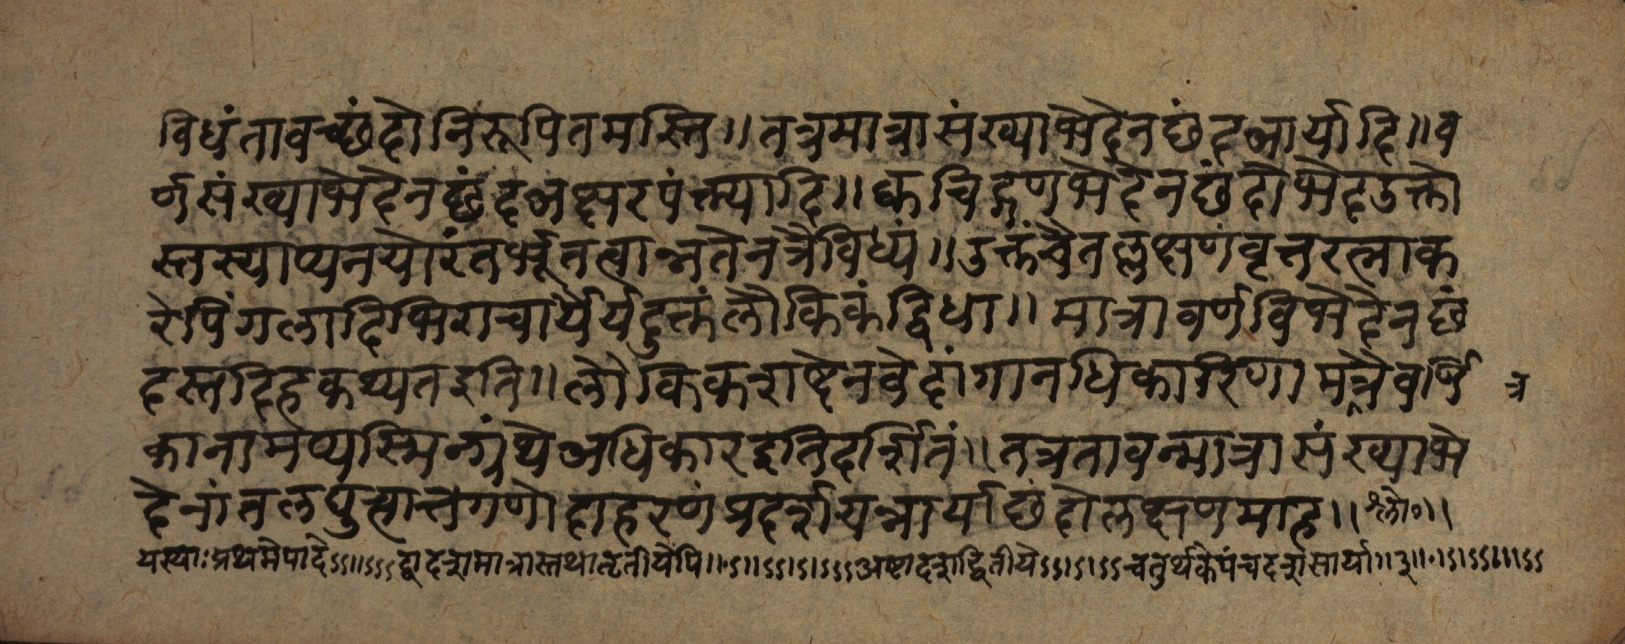 विधंतावच्छंदोनिरूपितमस्ति॥तत्रमात्रासंख्याभेदेनछंदआर्यादि॥व
र्णसंख्याभेदेनछंदअक्षरपंक्त्यादि॥क्वचिद्गणभेदेनछंदोभेदउक्तो
स्तस्याप्यनयोरंतर्भूतत्वान्नतेनत्रैविध्यं॥उक्तंचैतल्लक्षणंवृत्तरत्नाक
रेपिंगलादिभिराचार्यैर्यदुक्तंलौकिकंद्विधा॥मात्रावर्णविभेदेनछं
दस्तदिहकथ्यतइति॥लौकिकशब्देनवेदांगानधिकारिणामत्रैवर्णि
त्र
कानामप्यस्मिन्ग्रंथेअधिकारइतिदर्शितं॥तत्रतावन्मात्रासंख्याभे
देनांतलघुत्वात्तगणोदाहरणंप्रदर्शयन्नार्याछंदोलक्षणमाह॥श्लो०॥
यस्याःप्रथमेपादेऽऽ॥॥ऽऽऽद्वादशमात्रास्तथातृतीयेपि॥ऽ॥ऽऽ।ऽ।ऽऽऽअष्टादशद्वितीयेऽऽ।ऽ।ऽऽचतुर्थकेपंचदशसार्या॥३॥